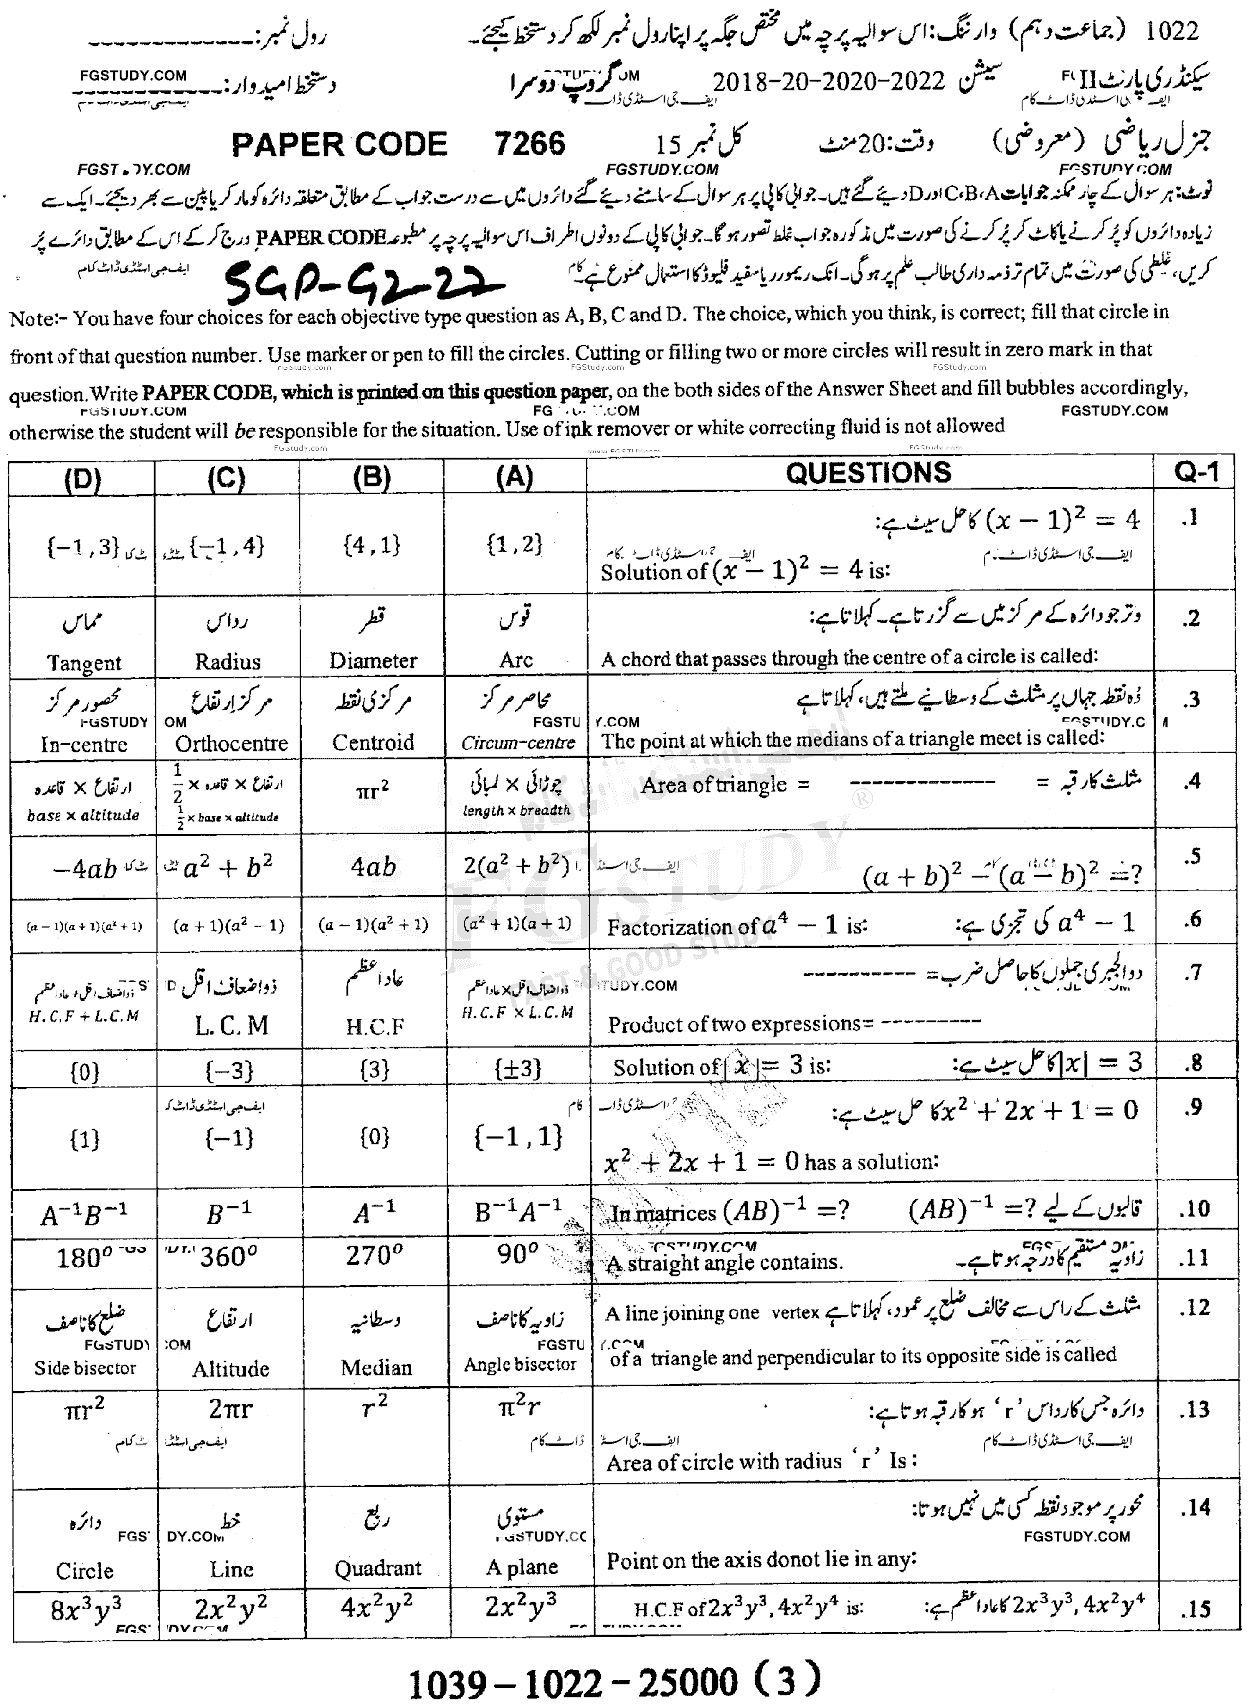 1022 (جماعت دہم) وارننگ: اس سوالیہ پرچہ میں مختص جگہ پر اپنا رول نمبر لکھ کر دستخط کیجئے۔ رول نمبر: -------------
سیکنڈری پارٹ II سیشن 2018-20-2020-2022 گروپ دوسرا دستخط امیدوار: -------------
FGSTUDY.COM
جنرل ریاضی (معروضی) وقت: 20 منٹ کل نمبر 15 PAPER CODE 7266
FGSTUDY.COM
نوٹ: ہر سوال کے چار ممکنہ جوابات C،B،A اور D دیئے گئے ہیں۔ جوابی کاپی پر ہر سوال کے سامنے دیئے گئے دائروں میں سے درست جواب کے مطابق متعلقہ دائرہ کو مارکر یا پین سے بھر دیجئے۔ ایک سے
زیادہ دائروں کو پُر کرنے یا کاٹ کر پُر کرنے کی صورت میں مذکورہ جواب غلط تصور ہوگا۔ جوابی کاپی کے دونوں اطراف اس سوالیہ پرچہ پر مطبوعہ PAPER CODE درج کر کے اس کے مطابق دائرے پُر
کریں، غلطی کی صورت میں تمام تر ذمہ داری طالب علم پر ہوگی۔ انک ریموور یا سفید فلیوڈ کا استعمال ممنوع ہے۔
SGD-G2-22
Note:- You have four choices for each objective type question as A, B, C and D. The choice, which you think, is correct; fill that circle in
front of that question number. Use marker or pen to fill the circles. Cutting or filling two or more circles will result in zero mark in that
question. Write PAPER CODE, which is printed on this question paper, on the both sides of the Answer Sheet and fill bubbles accordingly,
FGSTUDY.COM
otherwise the student will be responsible for the situation. Use of ink remover or white correcting fluid is not allowed
(D) (C) (B) (A) QUESTIONS Q-1
(x − 1)² = 4 کا حل سیٹ ہے: .1
{−1,3} {−1,4} {4,1} {1,2}
Solution of (x − 1)² = 4 is:
مماس رداس قطر قوس وتر جو دائرہ کے مرکز میں سے گزرتا ہے۔ کہلاتا ہے: .2
Tangent Radius Diameter Arc A chord that passes through the centre of a circle is called:
محصور مرکز مرکز ارتفاع مرکزی نقطہ محاصر مرکز وہ نقطہ جہاں پر مثلث کے وسطانیے ملتے ہیں، کہلاتا ہے .3
In-centre Orthocentre Centroid Circum-centre The point at which the medians of a triangle meet is called:
ارتفاع × قاعدہ 1/2 × قاعدہ × ارتفاع πr² چوڑائی × لمبائی Area of triangle = ------------- = مثلث کا رقبہ .4
base × altitude 1/2 × base × altitude length × breadth
−4ab a² + b² 4ab 2(a² + b²) (a + b)² − (a − b)² =? .5
(a − 1)(a + 1)(a² + 1) (a + 1)(a² − 1) (a − 1)(a² + 1) (a² + 1)(a + 1) Factorization of a⁴ − 1 is: a⁴ − 1 کی تجزی ہے: .6
ذواضعاف اقل + عاداعظم ذواضعاف اقل عاداعظم ذواضعاف اقل × عاداعظم دو الجبری جملوں کا حاصل ضرب = ---------- .7
H.C.F + L.C.M L.C.M H.C.F H.C.F × L.C.M Product of two expressions= ---------
{0} {−3} {3} {±3} Solution of |x| = 3 is: |x| = 3 کا حل سیٹ ہے: .8
x² + 2x + 1 = 0 کا حل سیٹ ہے: .9
{1} {−1} {0} {−1,1}
x² + 2x + 1 = 0 has a solution:
A⁻¹B⁻¹ B⁻¹ A⁻¹ B⁻¹A⁻¹ In matrices (AB)⁻¹ =? (AB)⁻¹ =? قالبوں کے لیے .10
180° 360° 270° 90° زاویہ مستقیم کا درجہ ہوتا ہے۔ .11
A straight angle contains.
ضلع کا ناصف ارتفاع وسطانیہ زاویہ کا ناصف A line joining one vertex مثلث کے راس سے مخالف ضلع پر عمود، کہلاتا ہے .12
Side bisector Altitude Median Angle bisector of a triangle and perpendicular to its opposite side is called
πr² 2πr r² π²r دائرہ جس کا رداس 'r' ہو کا رقبہ ہوتا ہے: .13
Area of circle with radius 'r' Is:
دائرہ خط ربع مستوی محور پر موجود نقطہ کسی میں نہیں ہوتا: .14
FGSTUDY.COM
Circle Line Quadrant A plane Point on the axis donot lie in any:
8x³y³ 2x²y² 4x²y² 2x²y³ H.C.F of 2x³y³, 4x²y⁴ is: 2x³y³, 4x²y⁴ کا عاداعظم ہے: .15
1039-1022-25000 (3)